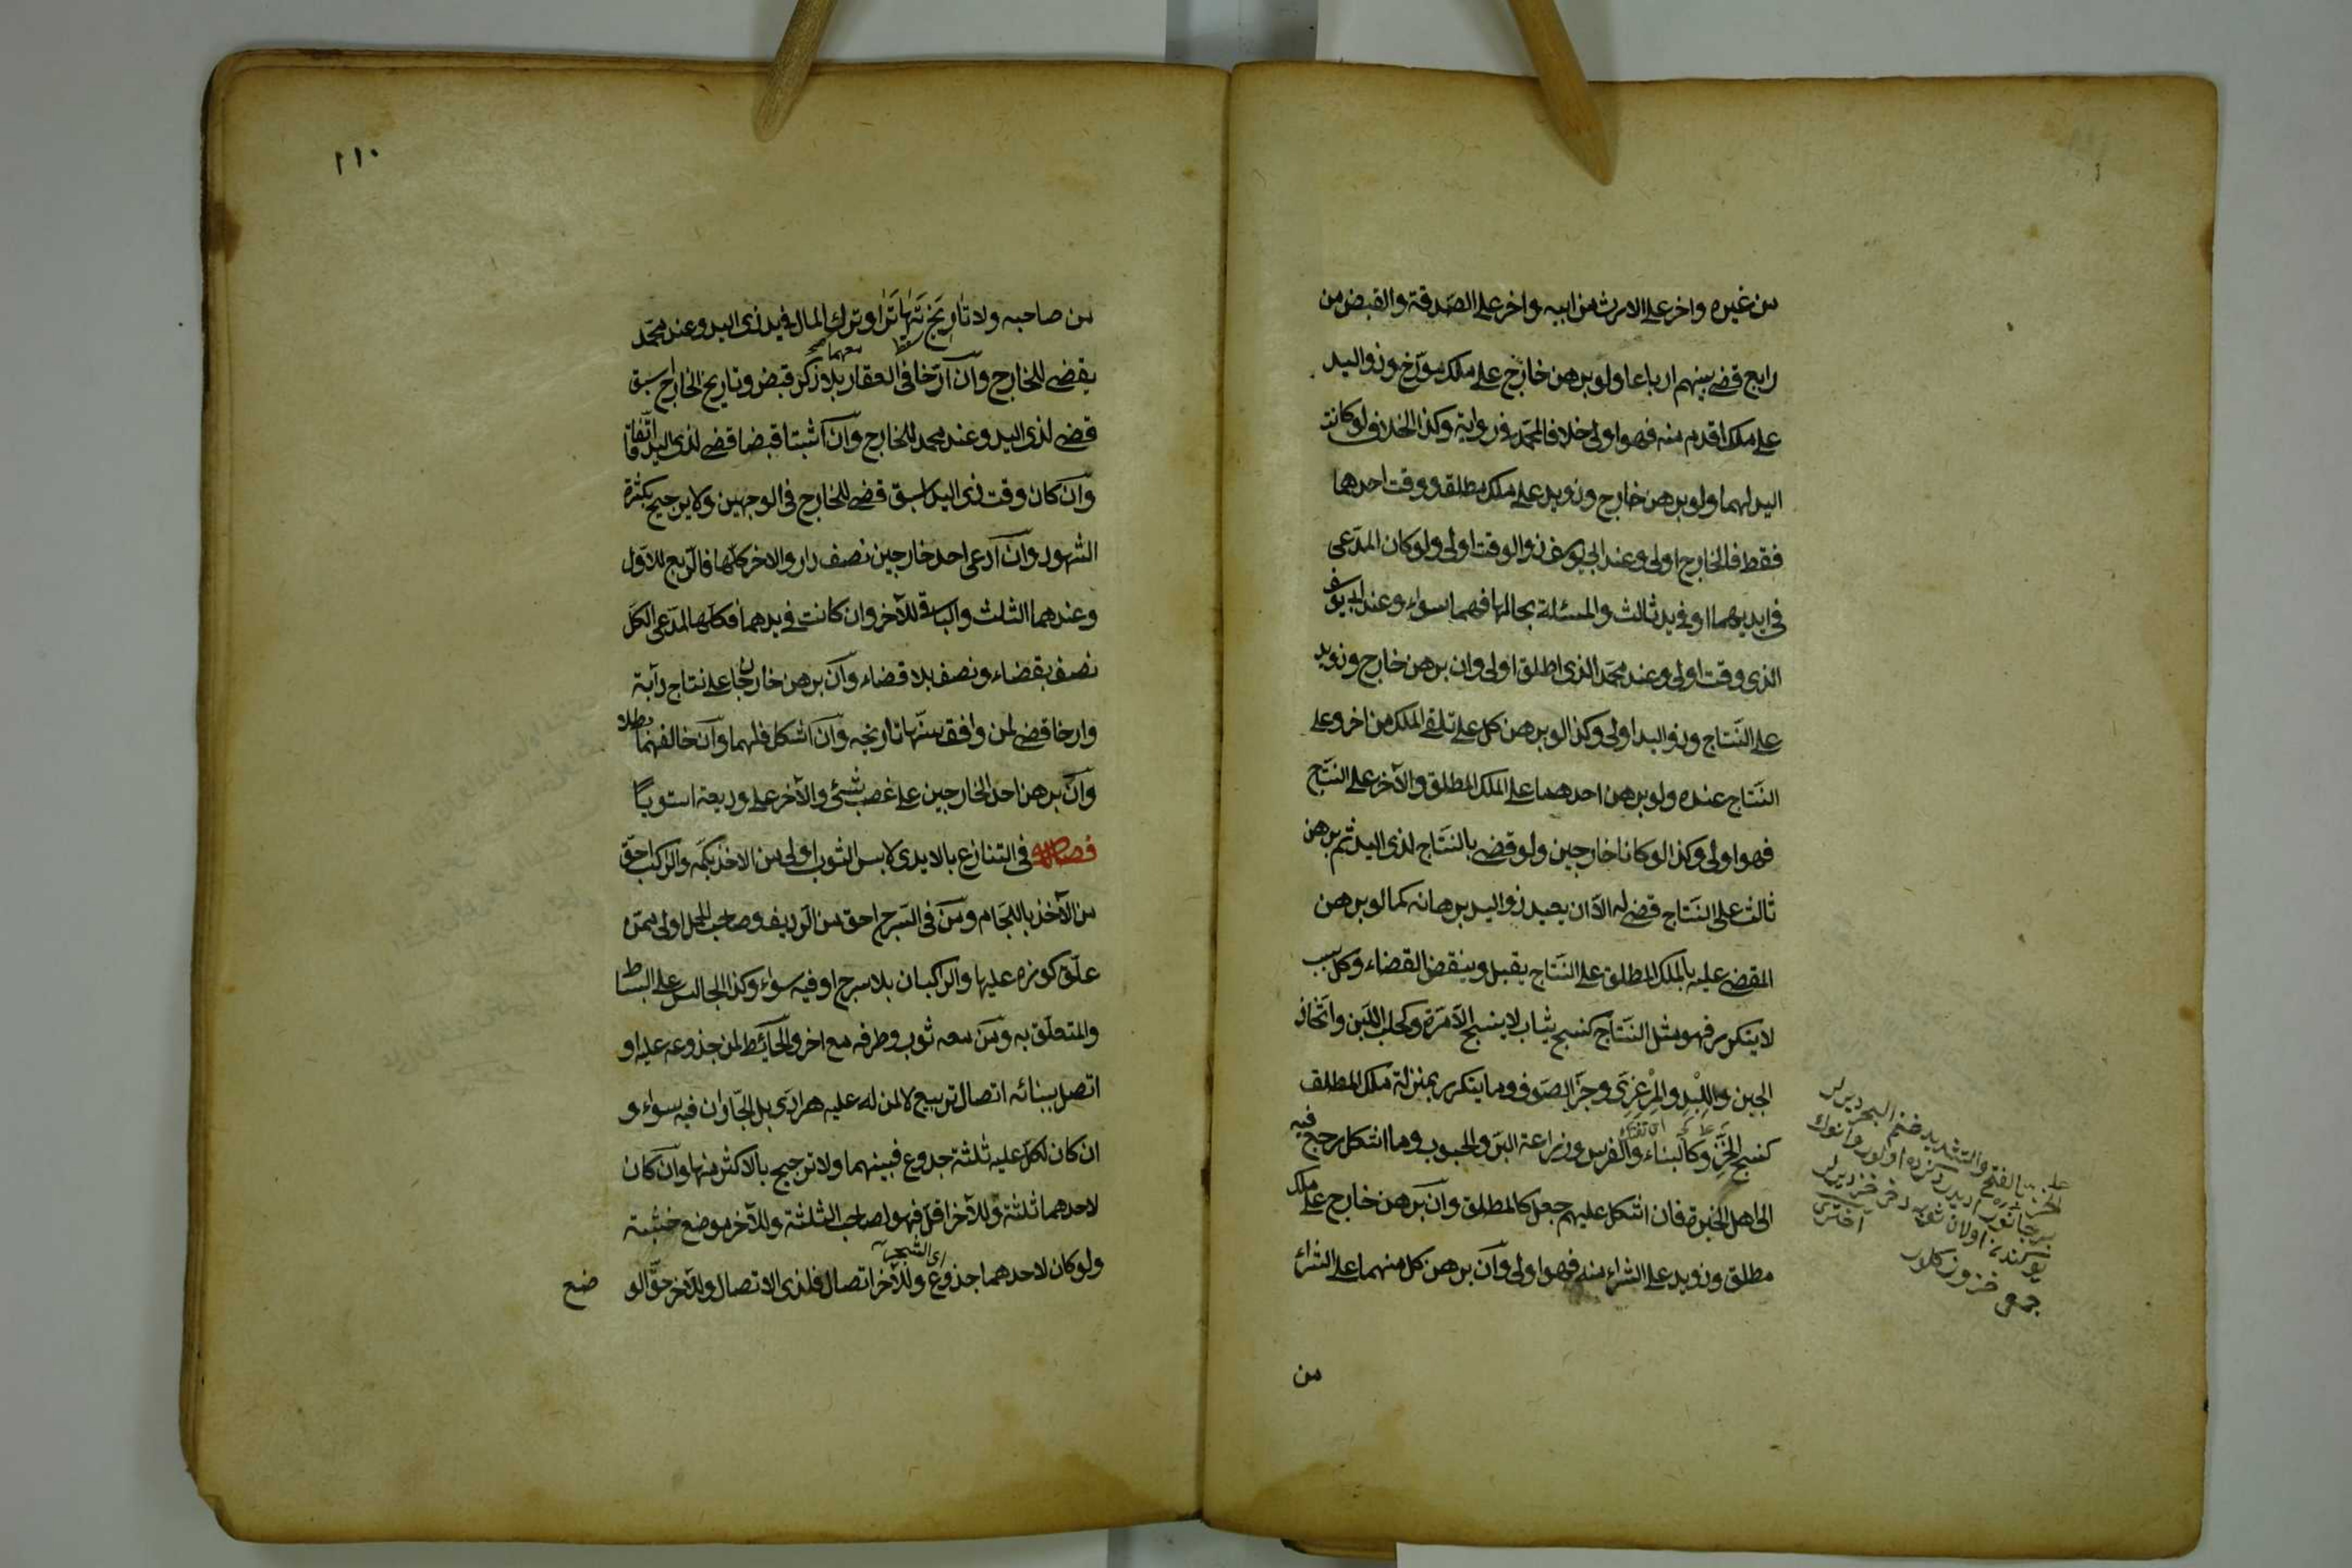 من غيره واخر على الارث من ابيه واخر على الصّدقة والقبض من
رابع قضى بينهم ارباعا ولو برهن خارج على ملك مؤرّخ وذو اليد
على ملك اقدم منه فهو اولى خلافا لمحمّد فى رواية وكذا الخلاف لو كانت
اليد لهما ولو برهن خارج وذو يد على ملك مطلق ووقت احدهما
فقط فالخارج اولى وعند ابى يوسف ذو الوقت اولى ولو كان المدّعى
فى ايديهما او فى يد ثالث والمسئلة بحالها فهما سواء وعند ابى يوسف
الذى وقت اولى وعند محمّد الذى اطلق اولى وان برهن خارج وذو يد
على النّتاج وذو اليد اولى وكذا لو برهن كل على تلقى الملك من اخر وعلى
النّتاج عنده ولو برهن احدهما على الملك المطلق والآخر على النتج
فهو اولى وكذا لو كانا خارجين ولو قضى بالنّتاج لذى اليد ثم برهن
ثالث على النّتاج قضى له الّا ان يعيد ذو اليد برهانه كما لو برهن
المقضى عليه بالملك المطلق على النّتاج يقبل وينقض القضاء وكل سبب
لا يتكرر فهو مثل النّتاج كنسج ثياب لا ينسج الّا مرّة وكحلب اللّبن واتّخاذ
الجبن واللّبد والمِرْعِزّى وجزّ الصّوف وما يتكرر بمنزلة ملك المطلق
كنسج الخَزّ وكالبناء والغرس وزراعة البرّ والحبوب وما اشكل يرجع فيه
الى اهل الخبرة فان اشكل عليهم جعل كالمطلق وان برهن خارج على ملك
مطلق وذو يد على الشراء منه فهو اولى وان برهن كل منهما على الشراء
من
الخز بالفتح والتشديد
جمعى خزوز كلور
١١٠
من صاحبه ولا تاريخ تَهاتَرَا وترك المال فى يد ذى اليد وعند محمّد
يقضى للخارج وان ارّخا فى العقار بلا ذكر قبض وتاريخ الخارج اسبق
قضى لذى اليد وعند محمد للخارج وان اثبتا قبضا قضى لذى اليد اتّفاقا
وان كان وقت ذى اليد اسبق قضى للخارج فى الوجهين ولا يرجيح بكثرة
الشهود وان ادعى احد خارجين نصف دار والاخر كلّها فالرّبع للاوّل
وعندهما الثلث والباقى للآخر وان كانت فى يدهما فكلّها لمدّعى الكلّ
نصف بقضاء ونصف بلا قضاء وان برهن خارجان على نتاج دآبة
وارخا قضى لمن وافق سنّها تاريخه وان اشكل فلهما وان خالفهما بطلا
وان برهن احد الخارجين على غصب شئ والآخر على وديعة استويا
فصل فى التنازع بالايدى لابس الثوب اولى من الاخذ بكمّه والراكب احقّ
من الآخذ باللّجام ومن فى السّرج احق من الرّديف وصاحب الحمل اولى ممّن
علّق كوزه عليها والراكبان بلا سرج او فيه سواء وكذا الجالس على البساط
والمتعلّق به ومن معه ثوب وطرفه مع اخر والحائط لمن جذوعه عليه او
اتصل ببنائه اتصال تربيع لا لمن له عليه هرادى بل الجاران فيه سواء و
ان كان لكلّ عليه ثلثة جذوع فبينهما ولا ترجيح بالاكثر منها وان كان
لاحدهما ثلثة وللآخر اقلّ فهو لصاحب الثلثة وللآخر موضع خشبته
ولو كان لاحدهما جذوع وللآخر اتصال فلذى الاتصال وللآخر حقّ الو
ضع